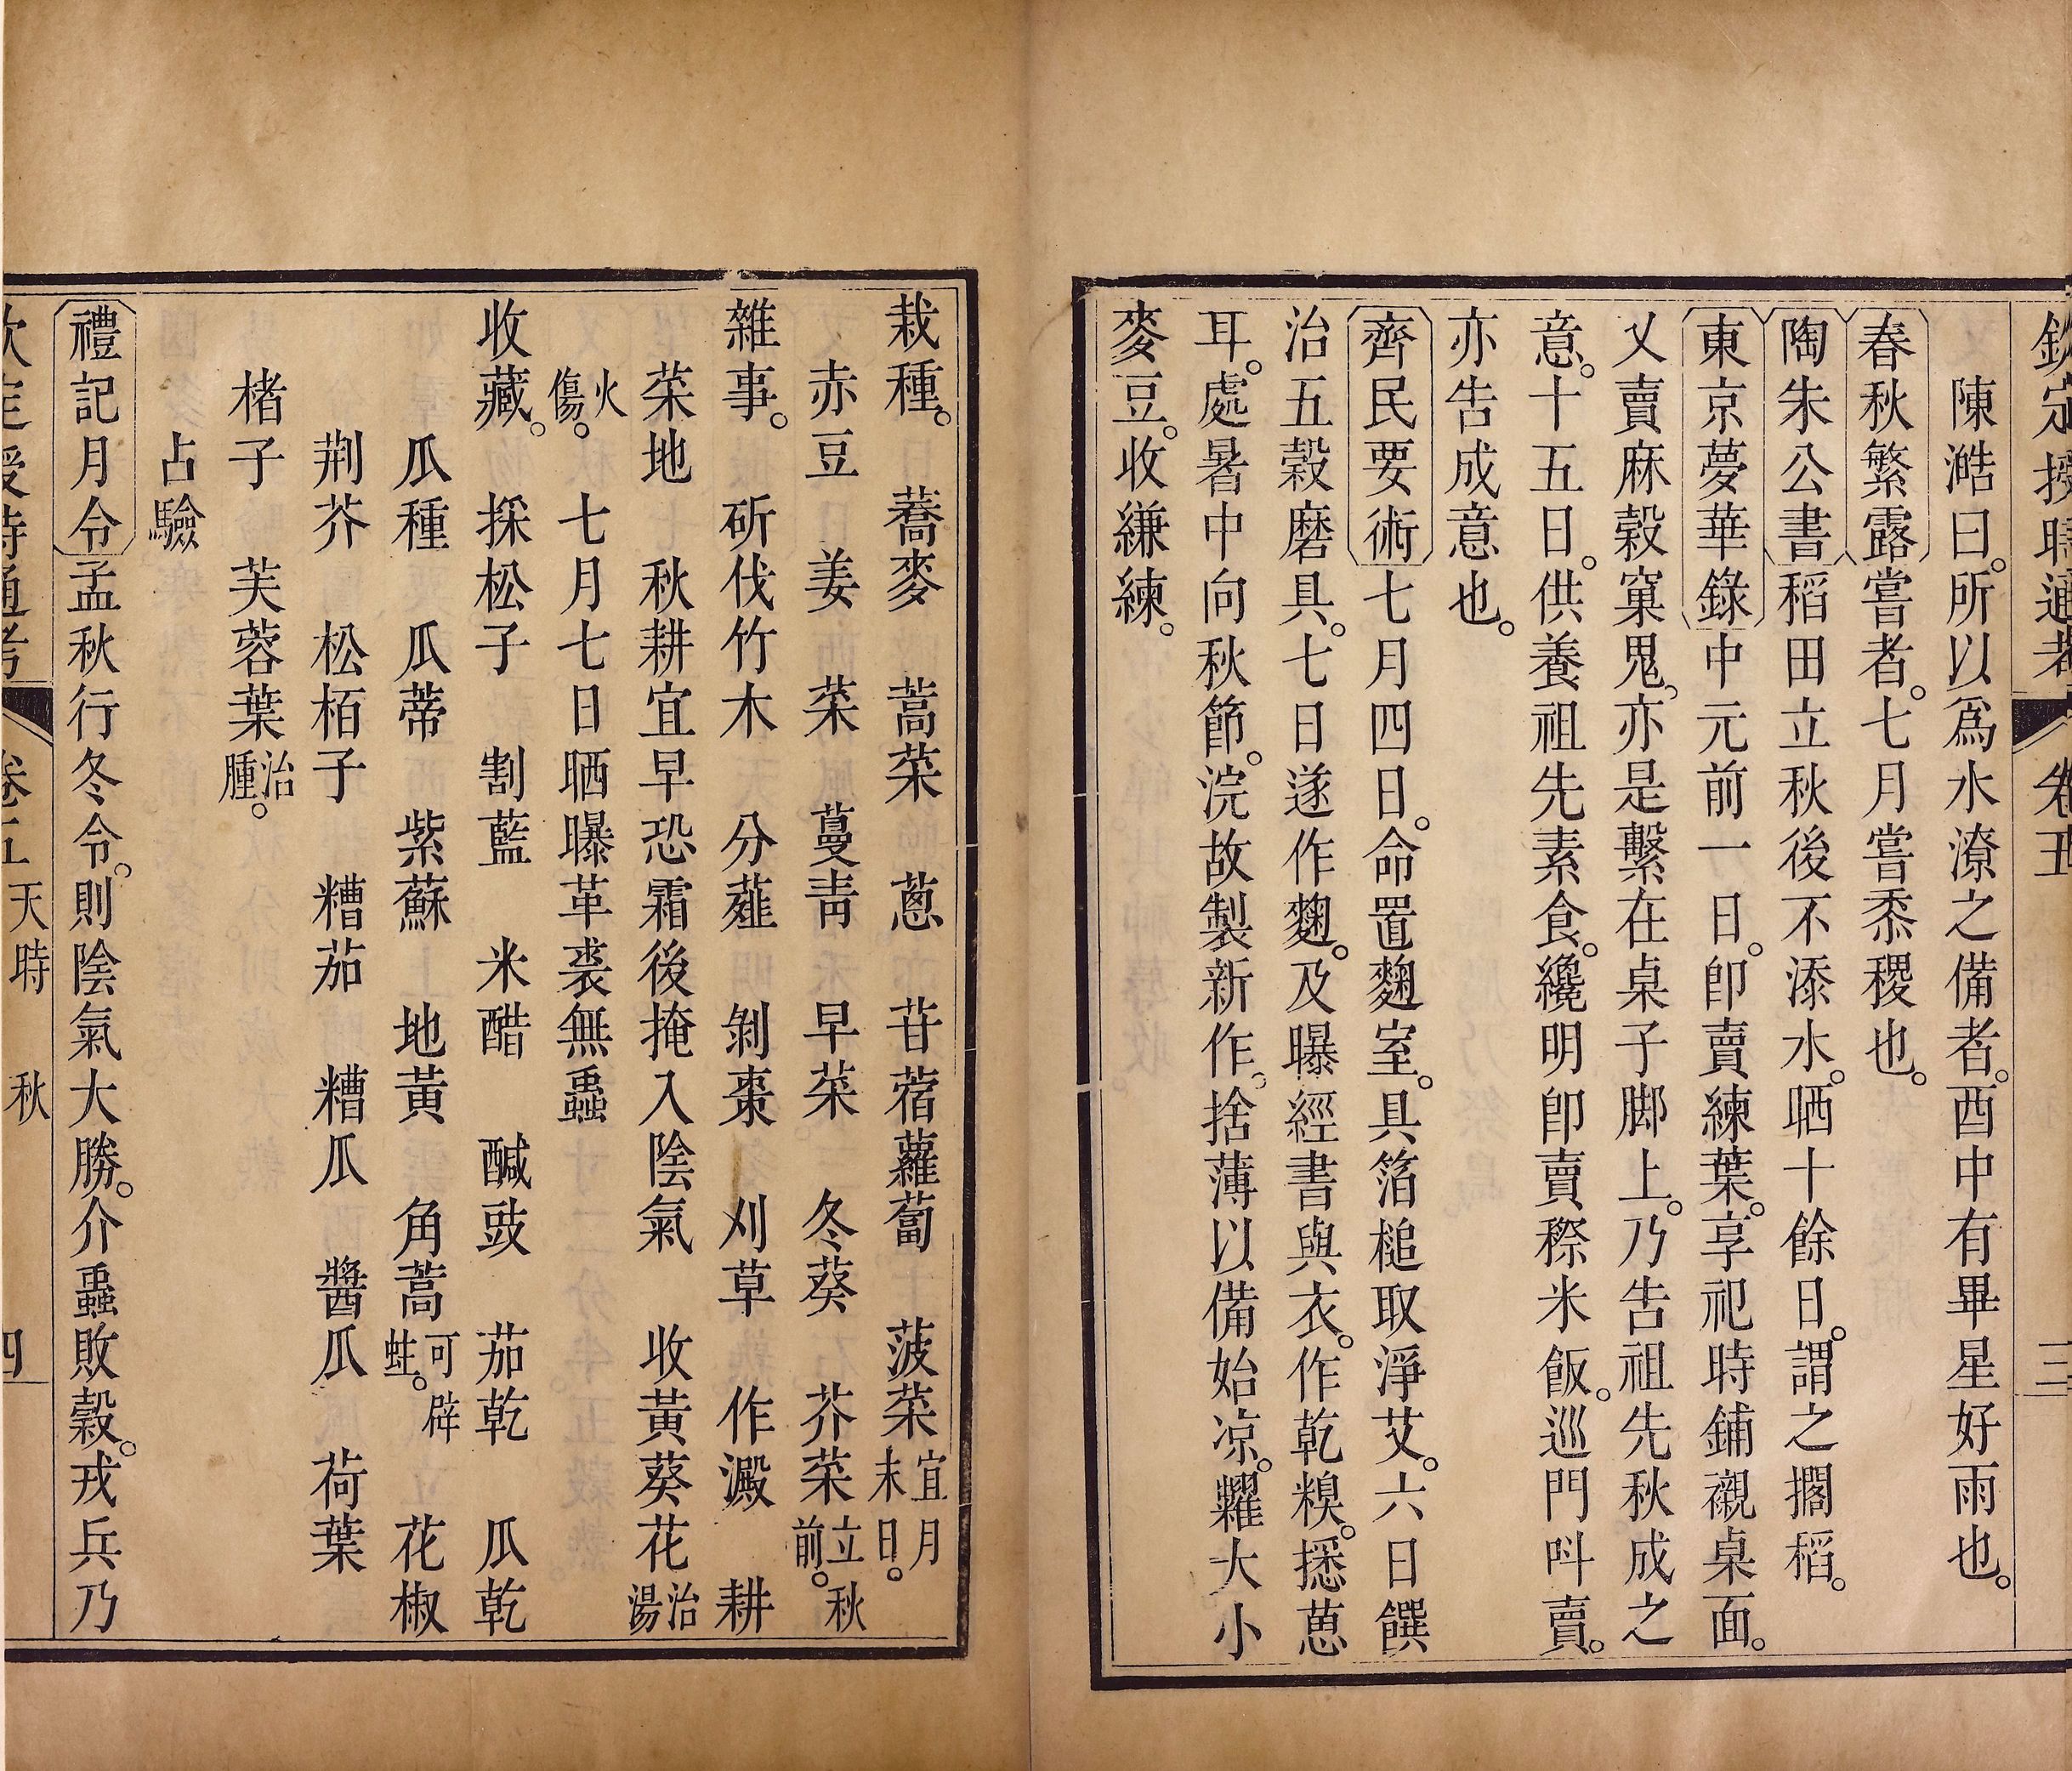 欽定授時通考 卷五 三
陳澔曰。所以爲水潦之備者。酉中有畢星好雨也。
春秋繁露嘗者。七月嘗黍稷也。
陶朱公書稻田立秋後不添水。晒十餘日。謂之擱稻。
東京夢華錄中元前一日。卽賣練葉。享祀時鋪襯桌面。
又賣麻穀窠鬼。亦是繫在桌子脚上。乃告祖先秋成之
意。十五日。供養祖先素食。纔明卽賣穄米飯。巡門叫賣。
亦告成意也。
齊民要術七月四日。命置麴室。具箔槌取淨艾。六日饌
治五穀磨具。七日遂作麴。及曝經書與衣。作乾糗。摁蒠
耳。處暑中向秋節。浣故製新作。捨薄以備始凉。糶大小
麥豆。收縑練。
栽種。 蕎麥 蒿菜 蔥 苷蓿蘿蔔 菠菜宜月末日。
赤豆 姜 菜 蔓靑 早菜 冬葵 芥菜立秋前。
雜事。 斫伐竹木 分薤 剝棗 刈草 作澱 耕
菜地 秋耕宜早恐霜後掩入陰氣 收黃葵花治湯
火傷。 七月七日晒曝革裘無蟲
收藏。 採松子 割藍 米醋 醎豉 茄乾 瓜乾
瓜種 瓜蒂 紫蘇 地黃 角蒿可辟蛀。 花椒
荆芥 松栢子 糟茄 糟瓜 醬瓜 荷葉
楮子 芙蓉葉治腫。
占驗
禮記月令孟秋行冬令。則陰氣大勝。介蟲敗穀。戎兵乃
欽定授時通考 卷五 天時 秋 四